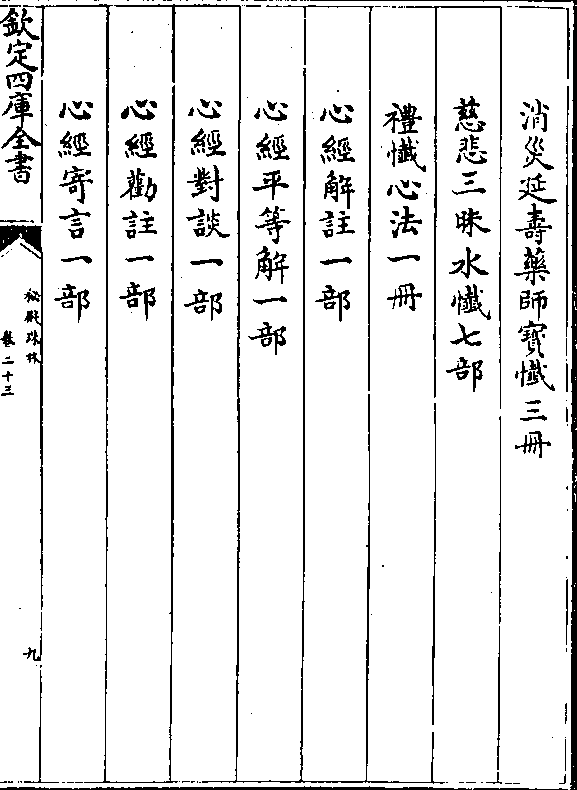 消災延壽藥師寶懺三冊
慈悲三昧水懺七部
禮懺心法一冊
心經解註一部
心經平等解一部
心經對談一部
心經勸註一部
心經寄言一部
欽定四庫全書
秘殿珠林
卷二十三
九